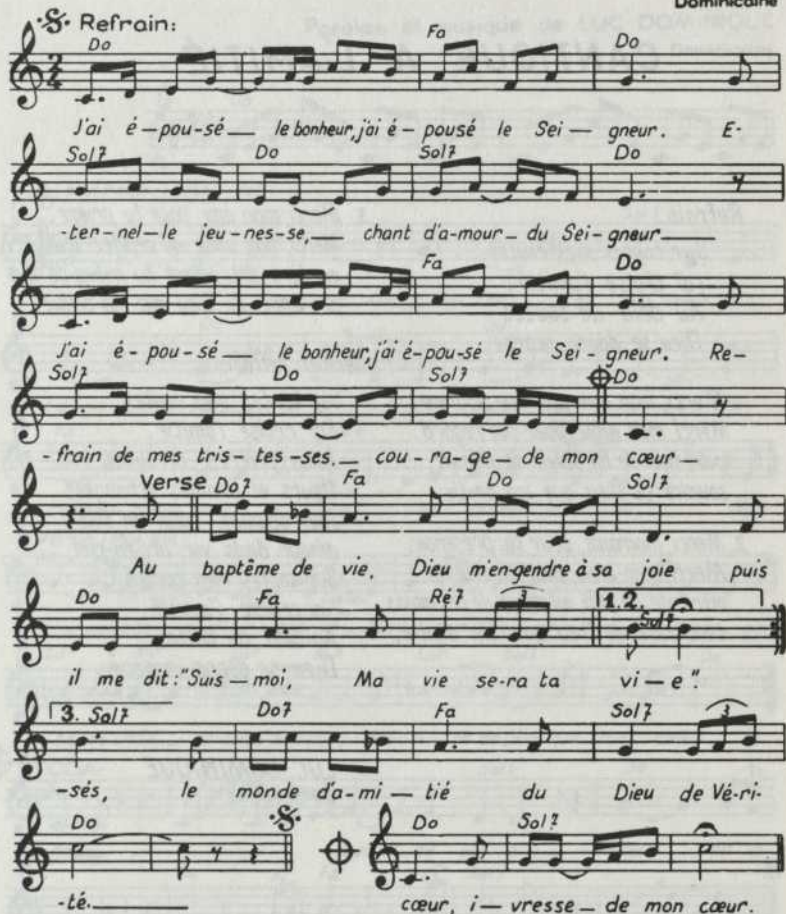 Dominicaine
Refrain:
Do Fa Do
J'ai é-pou-sé__ le bonheur, j'ai é-pousé le Sei-gneur. E-
Sol7 Do Sol7 Do
-ter-nel-le jeu-nes-se,__ chant d'a-mour__ du Sei-gneur__
Fa Do
J'ai é-pou-sé__ le bonheur, j'ai é-pou-sé le Sei-gneur. Re-
Sol7 Do Sol7 Do
-frain de mes tris-tes-ses.__ cou-ra-ge__ de mon cœur__
Verse Do7 Fa Do Sol7
Au baptême de vie, Dieu m'en-gendre à sa joie puis
Do Fa Ré7 3 1.2. Sol7
il me dit: "Suis-moi, Ma vie se-ra ta vi-e".
3. Sol7 Do7 Fa Sol7 3
-sés, le monde d'a-mi-tié du Dieu de Vé-ri-
Do Do Sol7
-té.__ cœur, i-vresse__ de mon cœur.